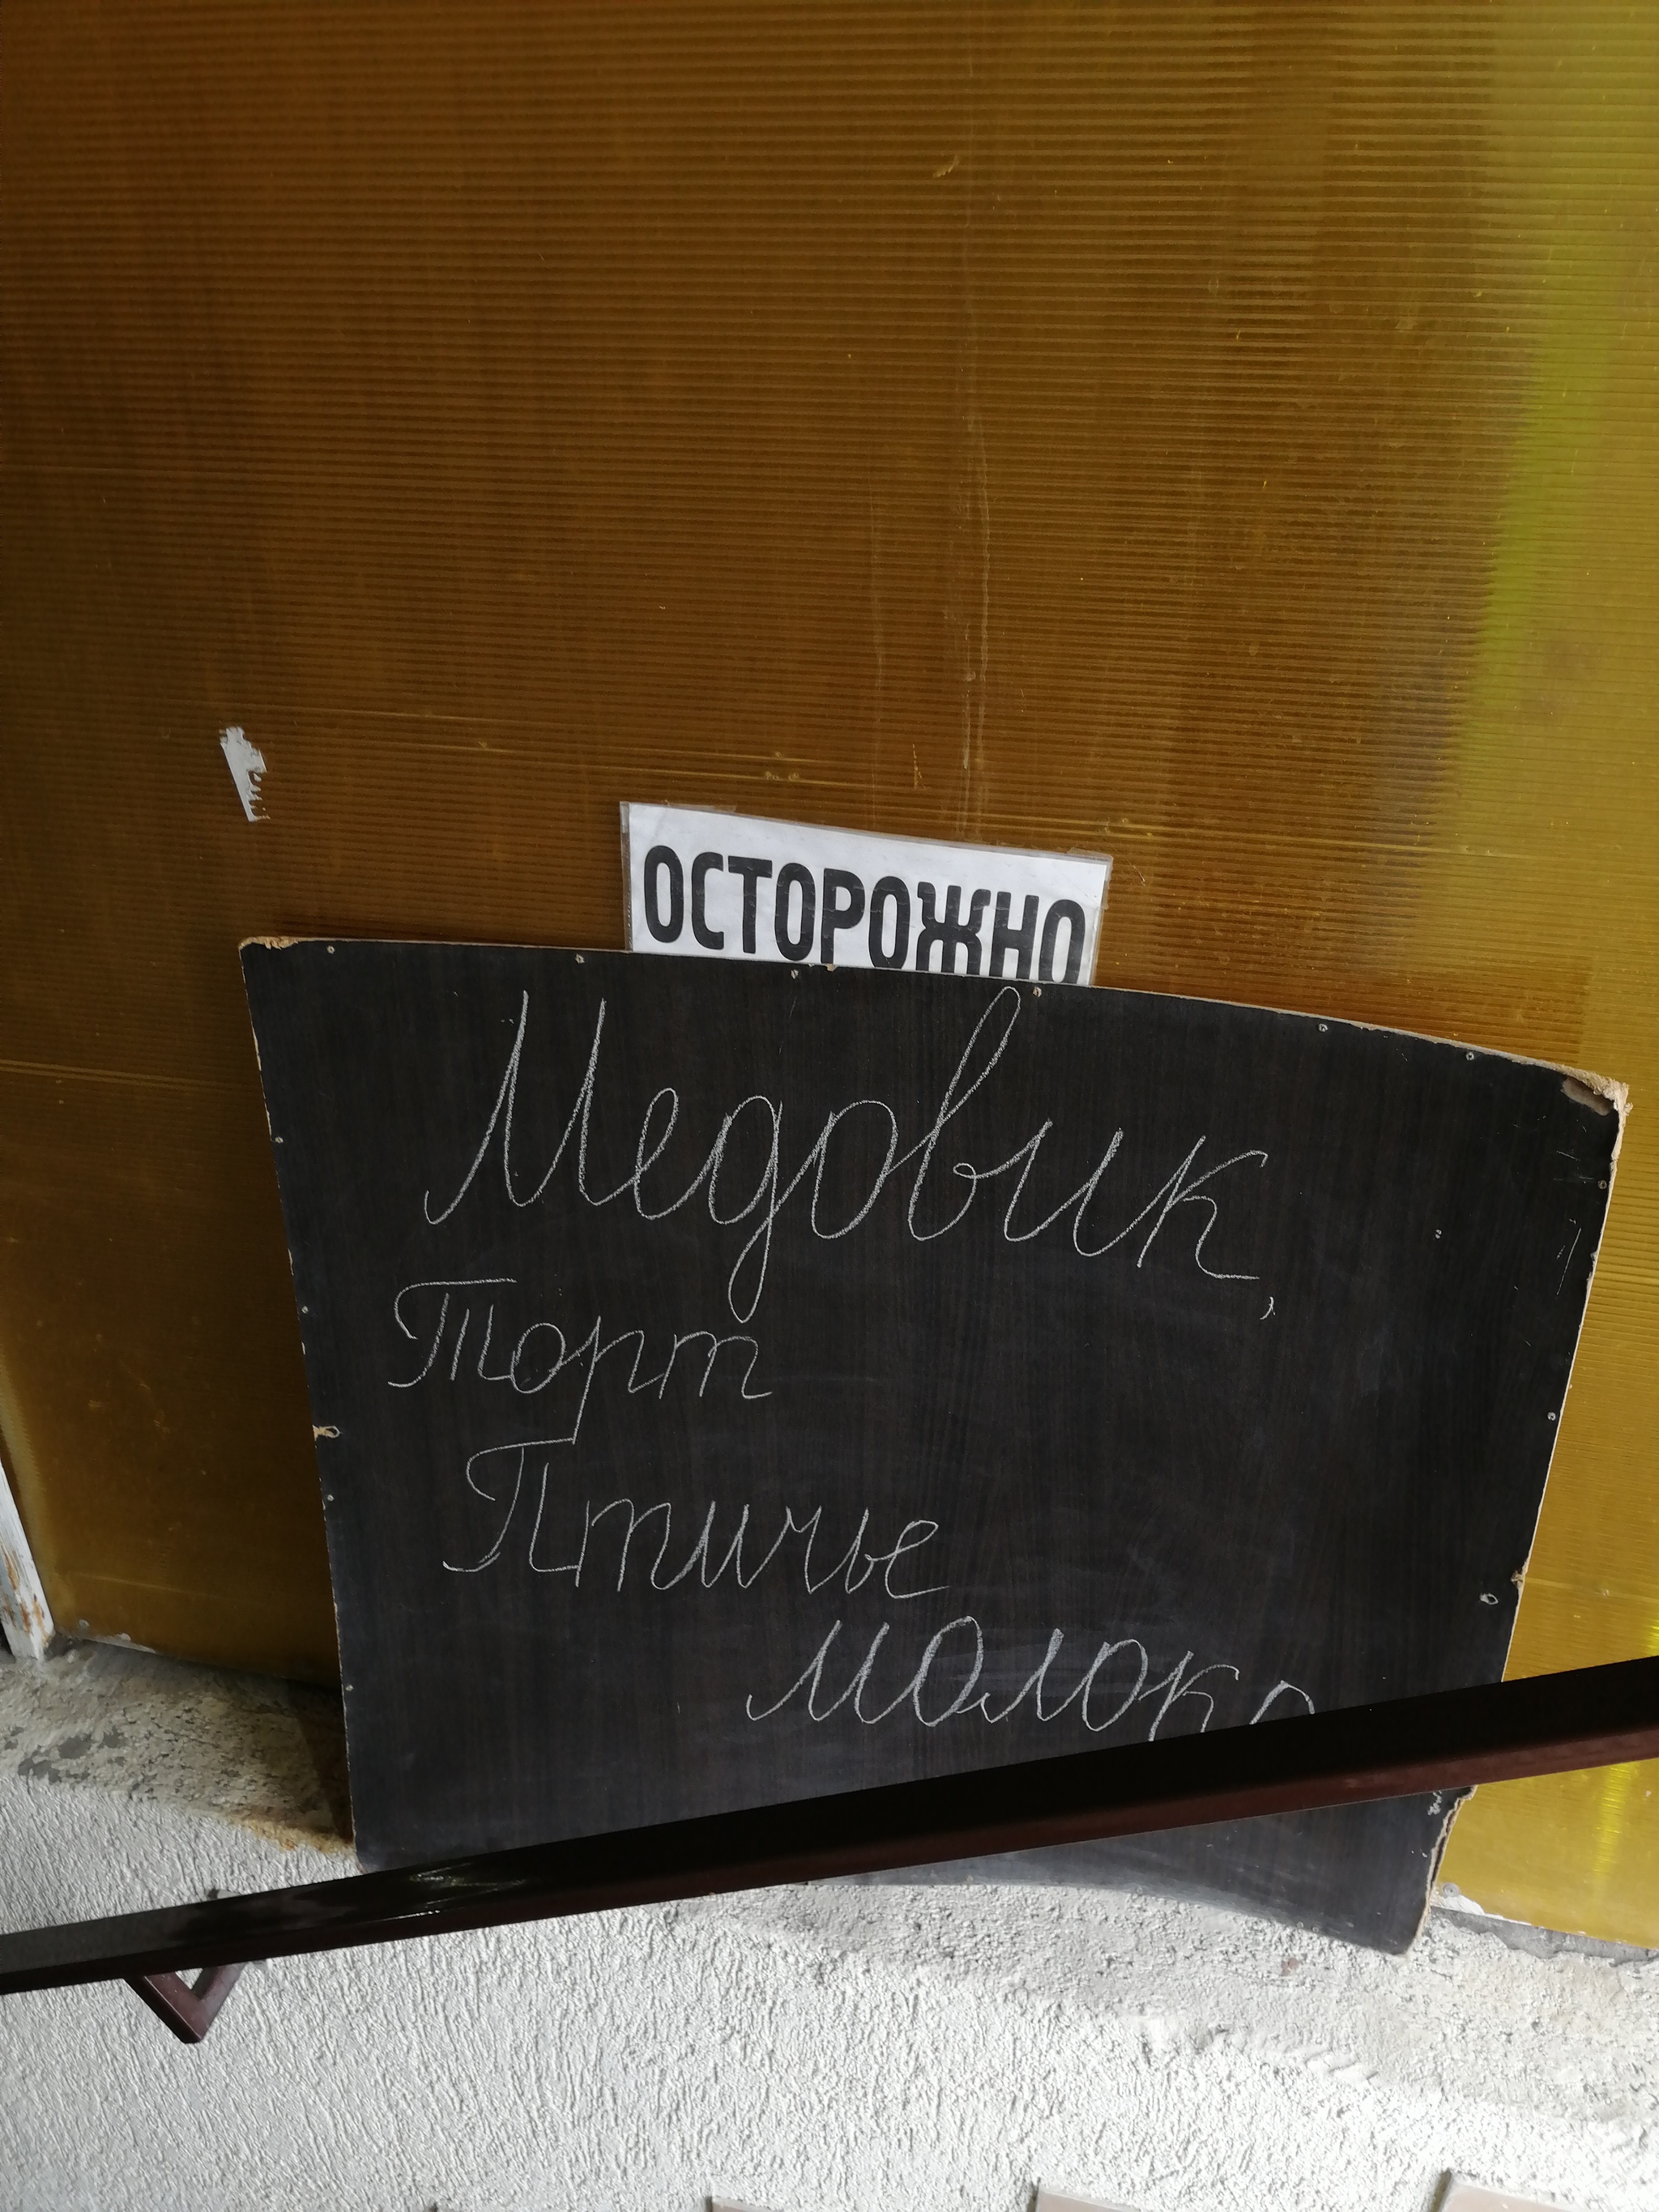 ОСТОРОЖНО
Медовик,
Торт
Птичье
молоко